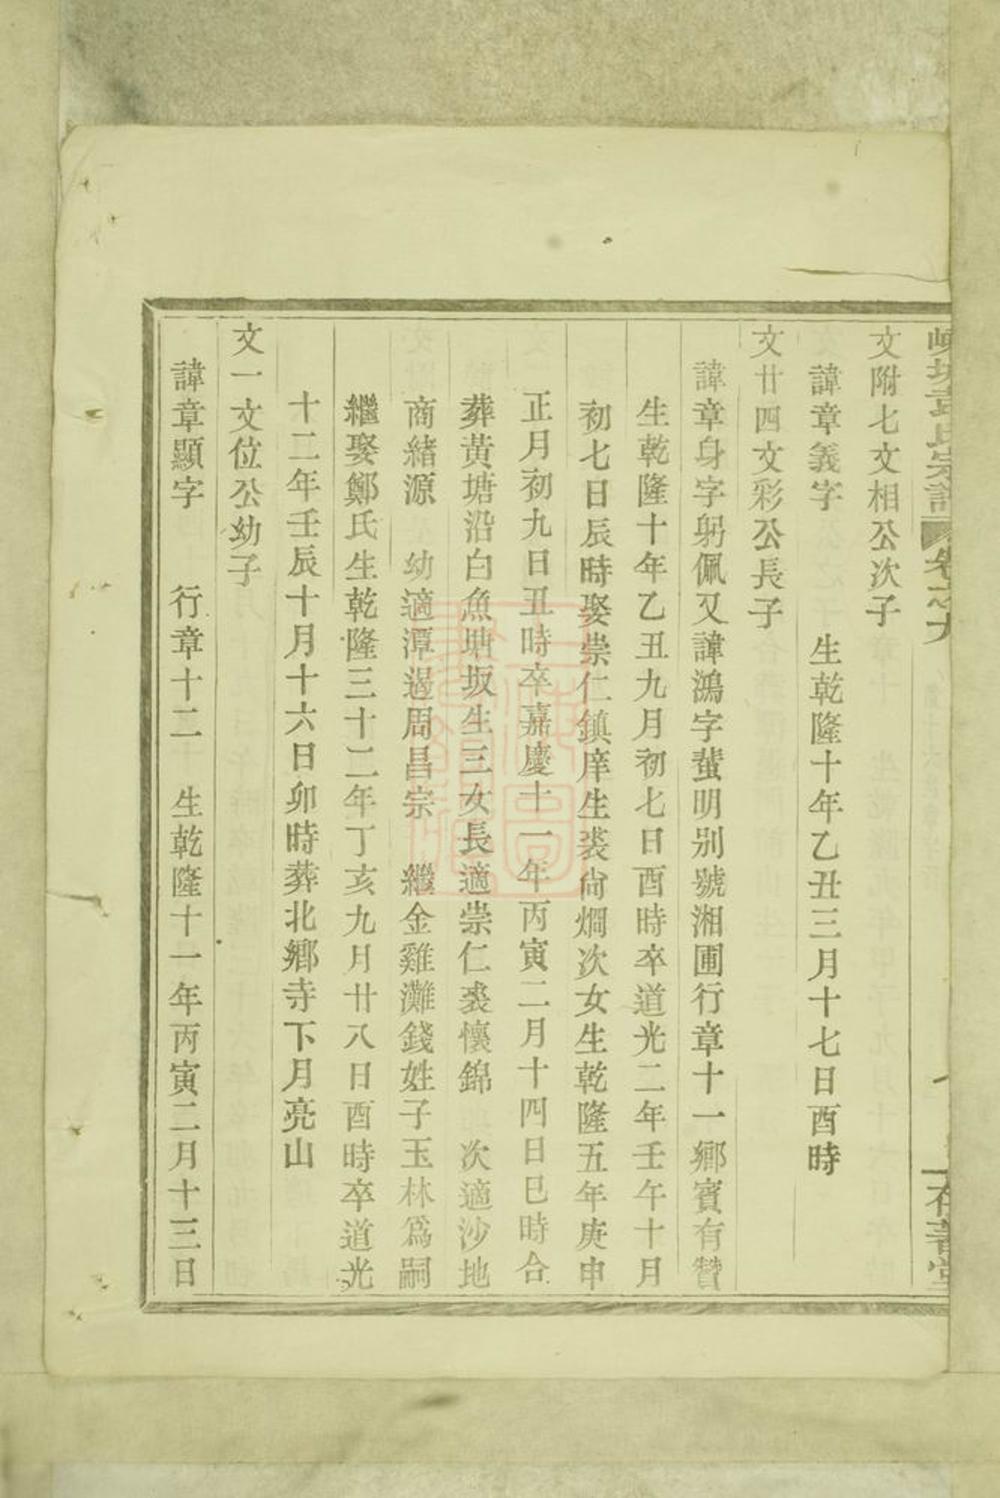 宗譜 卷之九
文附七文相公次子
諱章義字 生乾隆十年乙丑三月十七日酉時
文廿四文彩公長子
諱章身字躬佩又諱鴻字蜚明別號湘圃行章十一鄉賓有贊
生乾隆十年乙丑九月初七日酉時卒道光二年壬午十月
初七日辰時娶崇仁鎮庠生裘尙烱次女生乾隆五年庚申
正月初九日丑時卒嘉慶十一年丙寅二月十四日巳時合
葬黃塘沿白魚塘坂生三女長適崇仁裘懷錦 次適沙地
商緒源 幼適潭遏周昌宗 繼金雞灘錢姓子玉林爲嗣
繼娶鄭氏生乾隆三十二年丁亥九月廿八日酉時卒道光
十二年壬辰十月十六日卯時葬北鄉寺下月亮山
文一文位公幼子
諱章顯字 行章十二 生乾隆十一年丙寅二月十三日